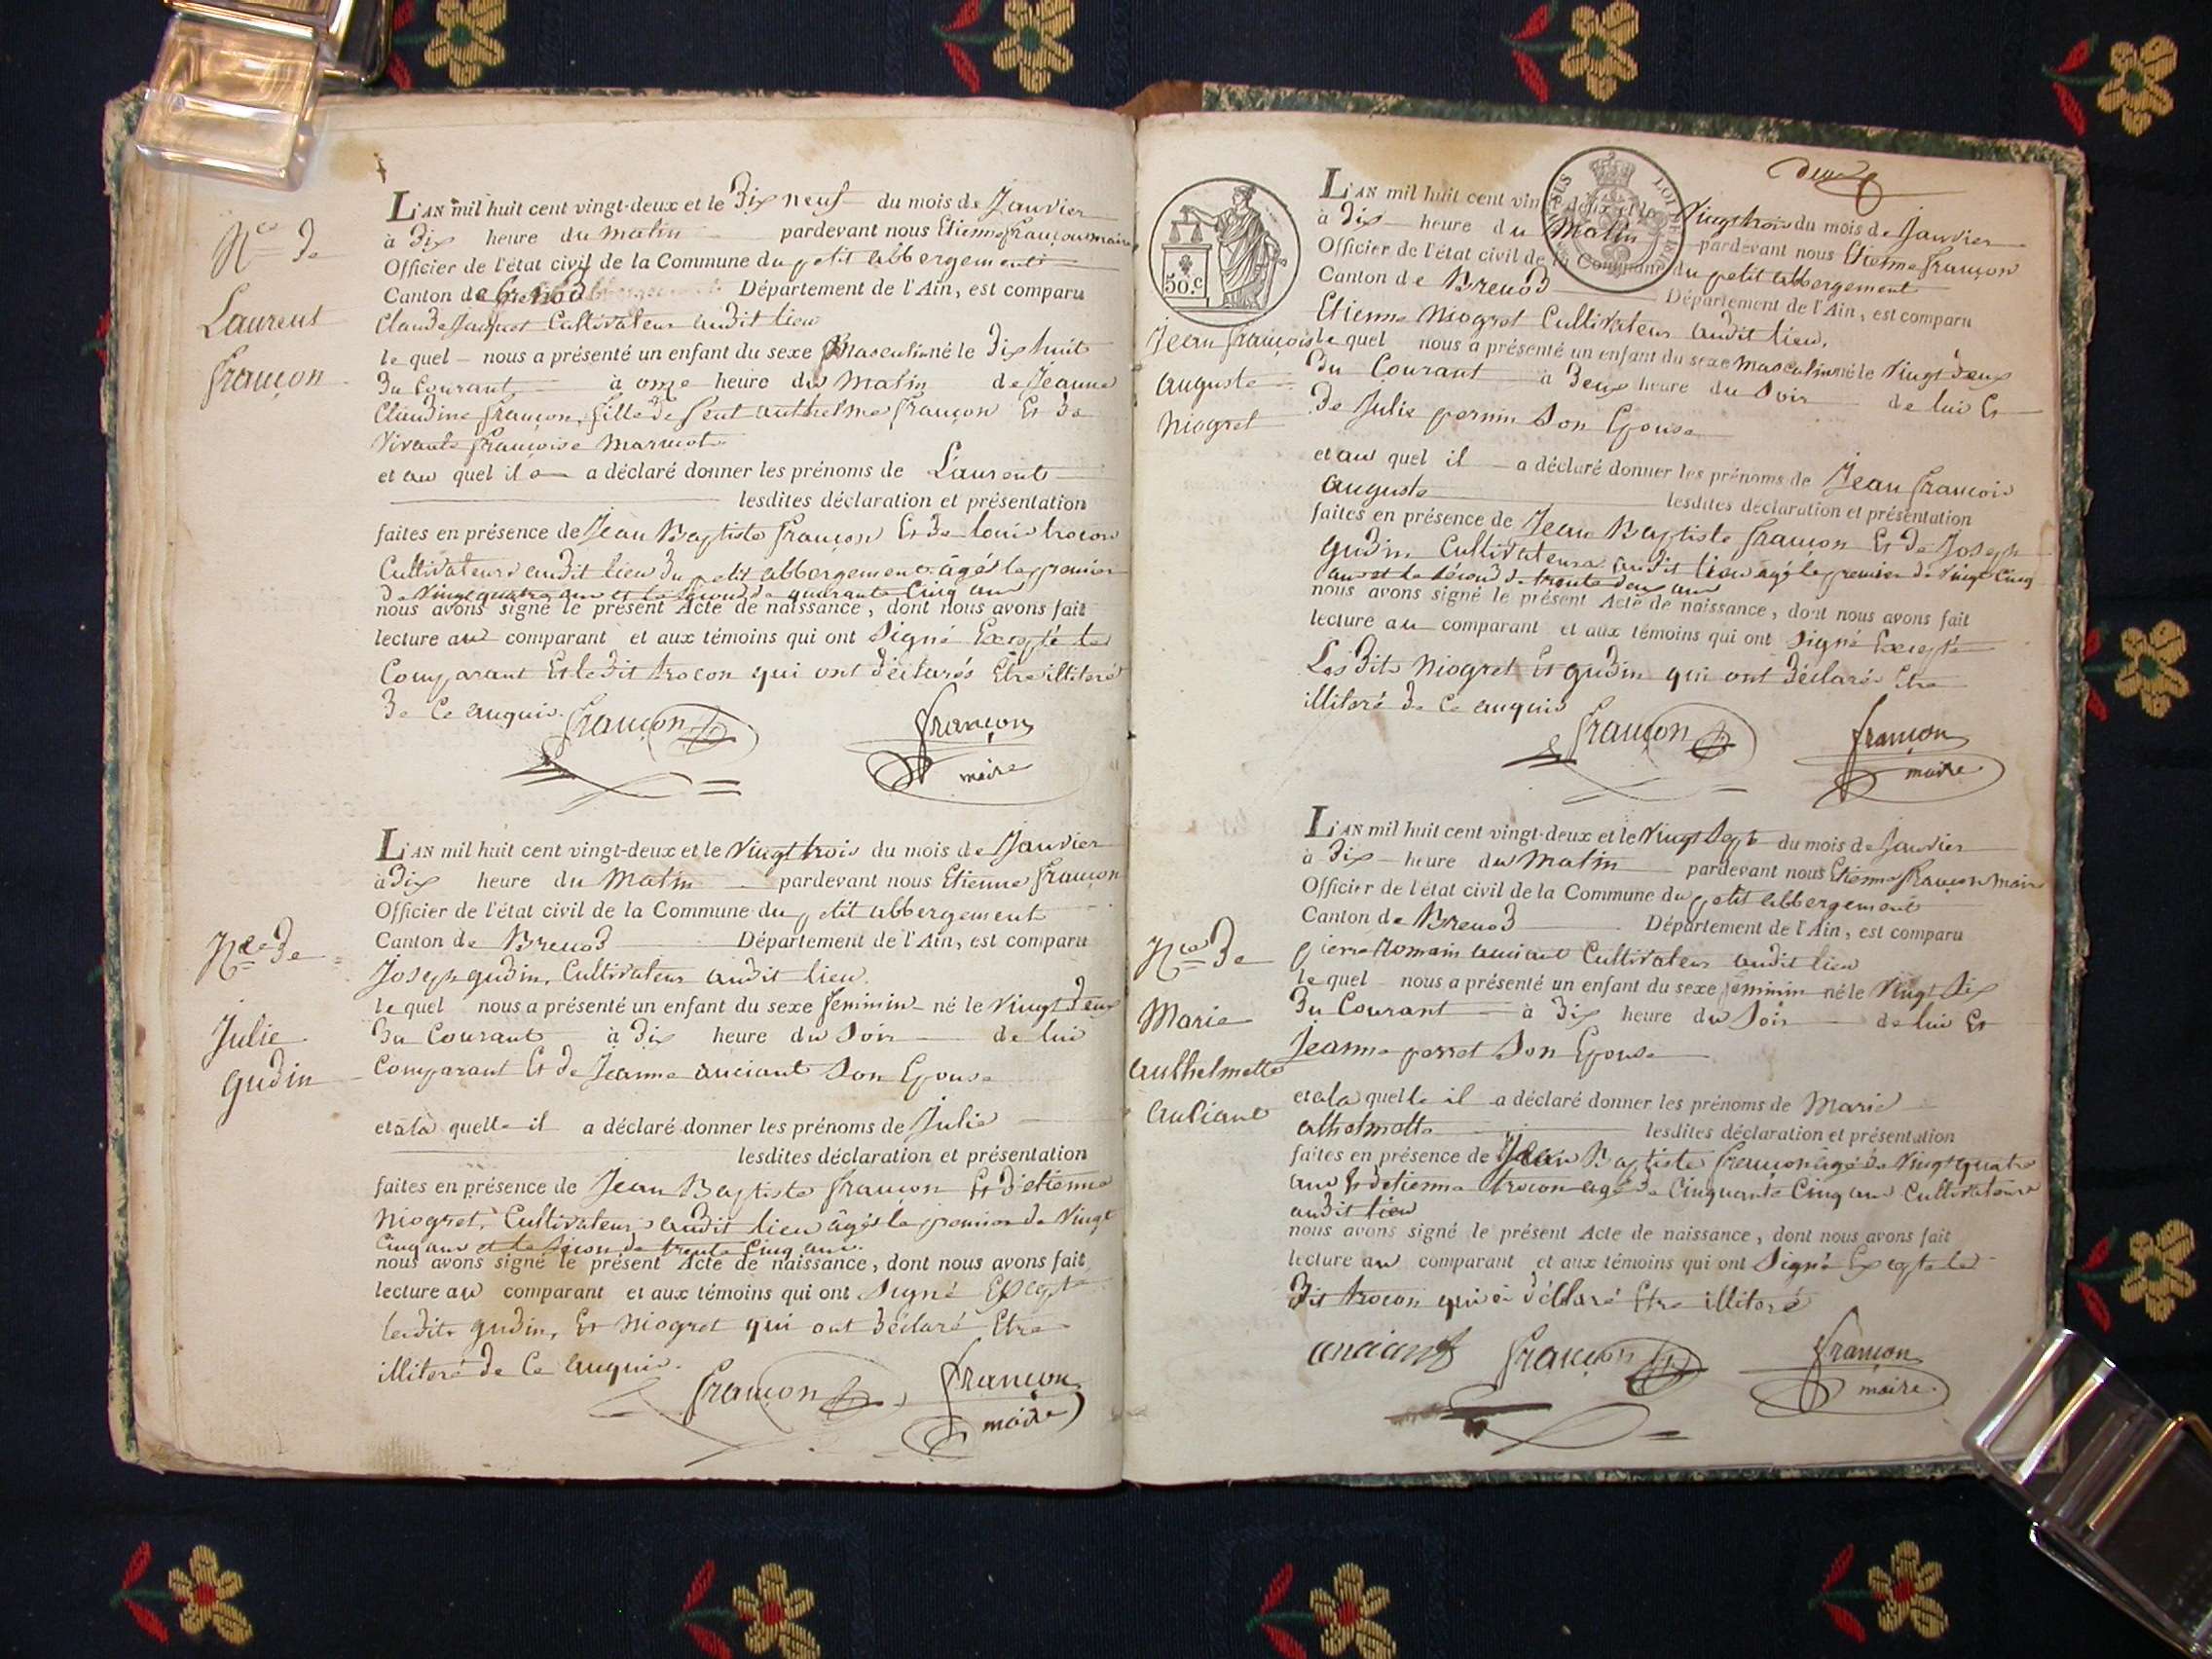 Nce de
Laurent
françon
L'AN mil huit cent vingt-deux et le dix neuf du mois de Janvier
à dix heure du matin pardevant nous Etienne françon maire
Officier de l'état civil de la Commune du petit abbergement
Canton de Brenod Département de l'Ain, est comparu
Claude Cultivateur audit lieu
le quel nous a présenté un enfant du sexe Masculin né le dix huit
du Courant à onze heure du Matin de Jeanne
Claudine françon, fille de feut anthelme françon Et de
vivante françoise
et au quel il a déclaré donner les prénoms de Laurent
lesdites déclaration et présentation
faites en présence de Jean Baptiste françon Et de louis trocon
Cultivateurs audit lieu du petit abbergement âgés le premier
de vingt quatre ans et le second de quarante Cinq ans
nous avons signé le présent Acte de naissance, dont nous avons fait
lecture au comparant et aux témoins qui ont Signé Excepté le
Comparant Et le dit trocon qui ont déclarés Etre illiteré
de Ce anquis.
françon françon
maire
Nce de
Julie
gudin
L'AN mil huit cent vingt-deux et le vingt trois du mois de Janvier
à dix heure du Matin pardevant nous Etienne françon
Officier de l'état civil de la Commune du petit abbergement
Canton de Brenod Département de l'Ain, est comparu
Joseph gudin, Cultivateur audit lieu.
le quel nous a présenté un enfant du sexe feminin né le vingt deux
du Courant à dix heure du Soir de lui
Comparant Et de Jeanne anciant Son Epouse
et à la quelle il a déclaré donner les prénoms de Julie
lesdites déclaration et présentation
faites en présence de Jean Baptiste françon Et d'etienne
Niogret, Cultivateurs audit lieu âgés le premier de vingt
Cinq ans et le second de trente Cinq ans.
nous avons signé le présent Acte de naissance, dont nous avons fait
lecture au comparant et aux témoins qui ont Signé Excepte
lesdits gudin, Et Niogret qui ont déclaré Etre
illiteré de Ce anquis.
françon françon
maire
deux
50.c
Jean françois
auguste
Niogret
L'AN mil huit cent vingt-deux et le vingt trois du mois de Janvier
à dix heure du Matin pardevant nous Etienne françon
Officier de l'état civil de la Commune du petit abbergement
Canton de Brenod Département de l'Ain, est comparu
Etienne Niogret Cultivateur audit lieu.
le quel nous a présenté un enfant du sexe masculin né le vingt deux
du Courant à deux heure du Soir de lui Et
de Julie pernin Son Epouse
et au quel il a déclaré donner les prénoms de Jean françois
auguste lesdites déclaration et présentation
faites en présence de Jean Baptiste françon Et de Joseph
gudin Cultivateurs audit lieu agé le premier de vingt Cinq
ans et le sécond de trente deux ans
nous avons signé le présent Acte de naissance, dont nous avons fait
lecture au comparant et aux témoins qui ont Signé Excepté
Les dits Niogret Et gudin qui ont déclaré Etre
illiteré de Ce anquis
françon françon
maire
Nce de
Marie
anthelmette
anciant
L'AN mil huit cent vingt-deux et le vingt Sept du mois de Janvier
à dix heure du Matin pardevant nous Etienne françon Maire
Officier de l'état civil de la Commune du petit abbergement
Canton de Brenod Département de l'Ain, est comparu
pierre Romain anciant Cultivateur audit lieu
le quel nous a présenté un enfant du sexe feminin né le vingt Six
du Courant à dix heure du Soir de lui Et
Jeanne perret Son Epouse
et a la quelle il a déclaré donner les prénoms de Marie
athelmette lesdites déclaration et présentation
faites en présence de Jean Baptiste françon âgé de vingt quatre
ans Et detienne trocon agé de Cinquante Cinq ans Cultivateurs
audit lieu
nous avons signé le présent Acte de naissance, dont nous avons fait
lecture au comparant et aux témoins qui ont Signé Excepte le
dit trocon qui a déclaré Etre illiteré
anciant françon françon
maire.